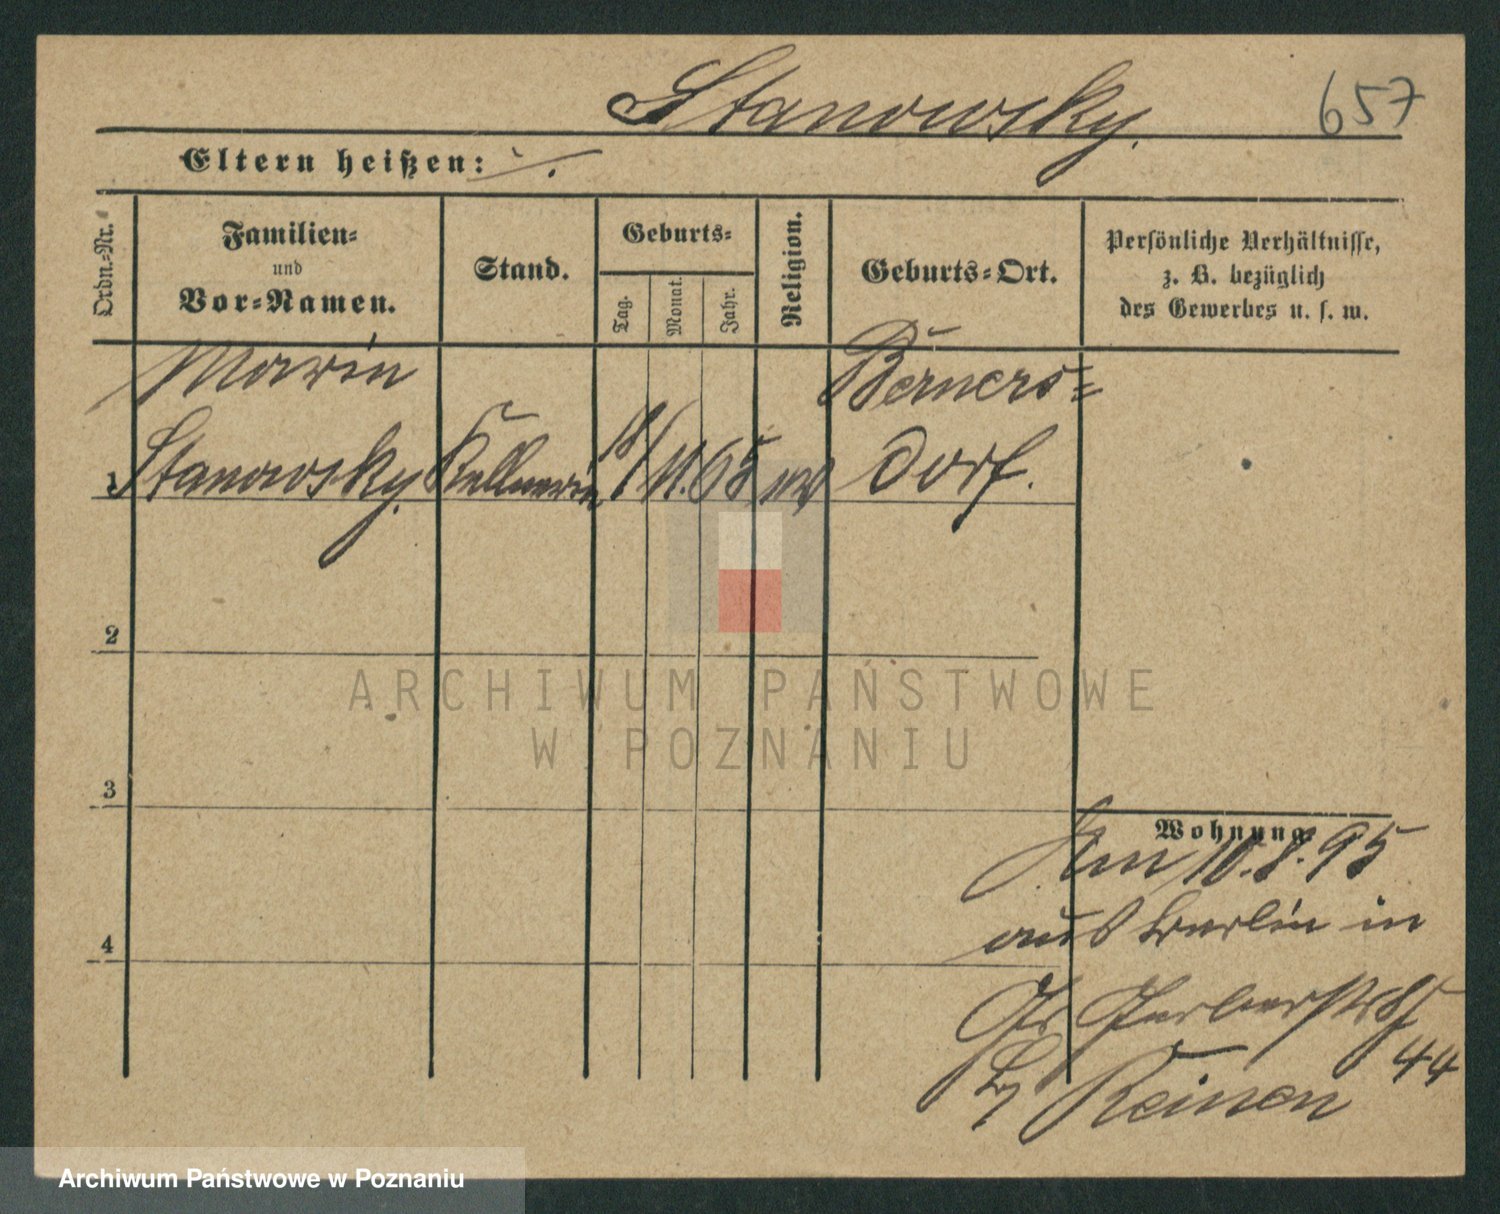 Stanowsky.
657
Eltern heißen: ·/.
Ordn.-Nr.
Familien-
und
Vor-Namen.
Stand.
Geburts-
Tag.
Monat.
Jahr.
Religion.
Geburts-Ort.
Persönliche Verhältnisse,
z. B. bezüglich
des Gewerbes u. s. w.
1
Marie
Stanowsky.
Kellnerin
18/
11.
65
Berners=
dorf.
2
3
4
Wohnung:
Am 10.8.95
aus Berlin in
Gr. Gerberstr
44
ARCHIWUM PAŃSTWOWE
W POZNANIU
Archiwum Państwowe w Poznaniu